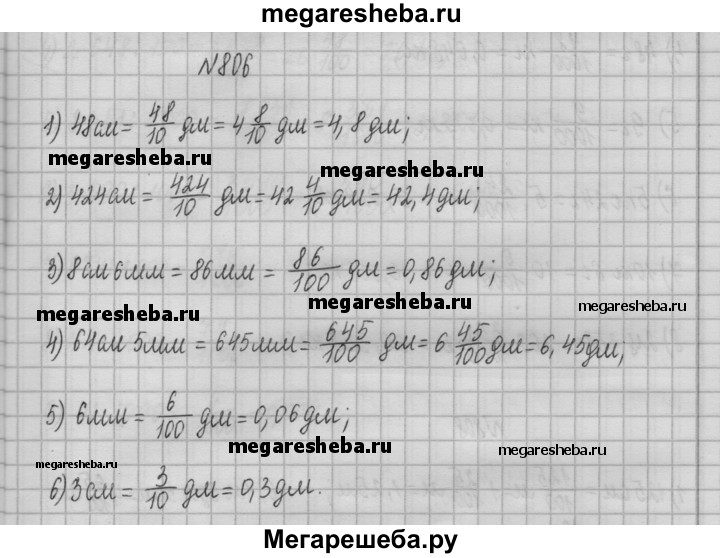 megaresheba.ru
№806
1) 48см = 48/10 дм = 4 8/10 дм = 4,8 дм;
megaresheba.ru megaresheba.ru
2) 424см = 424/10 дм = 42 4/10 дм = 42,4 дм;
3) 8см 6мм = 86мм = 86/100 дм = 0,86 дм;
megaresheba.ru megaresheba.ru megaresheba.ru
4) 64см 5мм = 645мм = 645/100 дм = 6 45/100 дм = 6,45 дм;
5) 6мм = 6/100 дм = 0,06 дм;
megaresheba.ru megaresheba.ru
megaresheba.ru
6) 3см = 3/10 дм = 0,3 дм.
Мегарешеба.ру